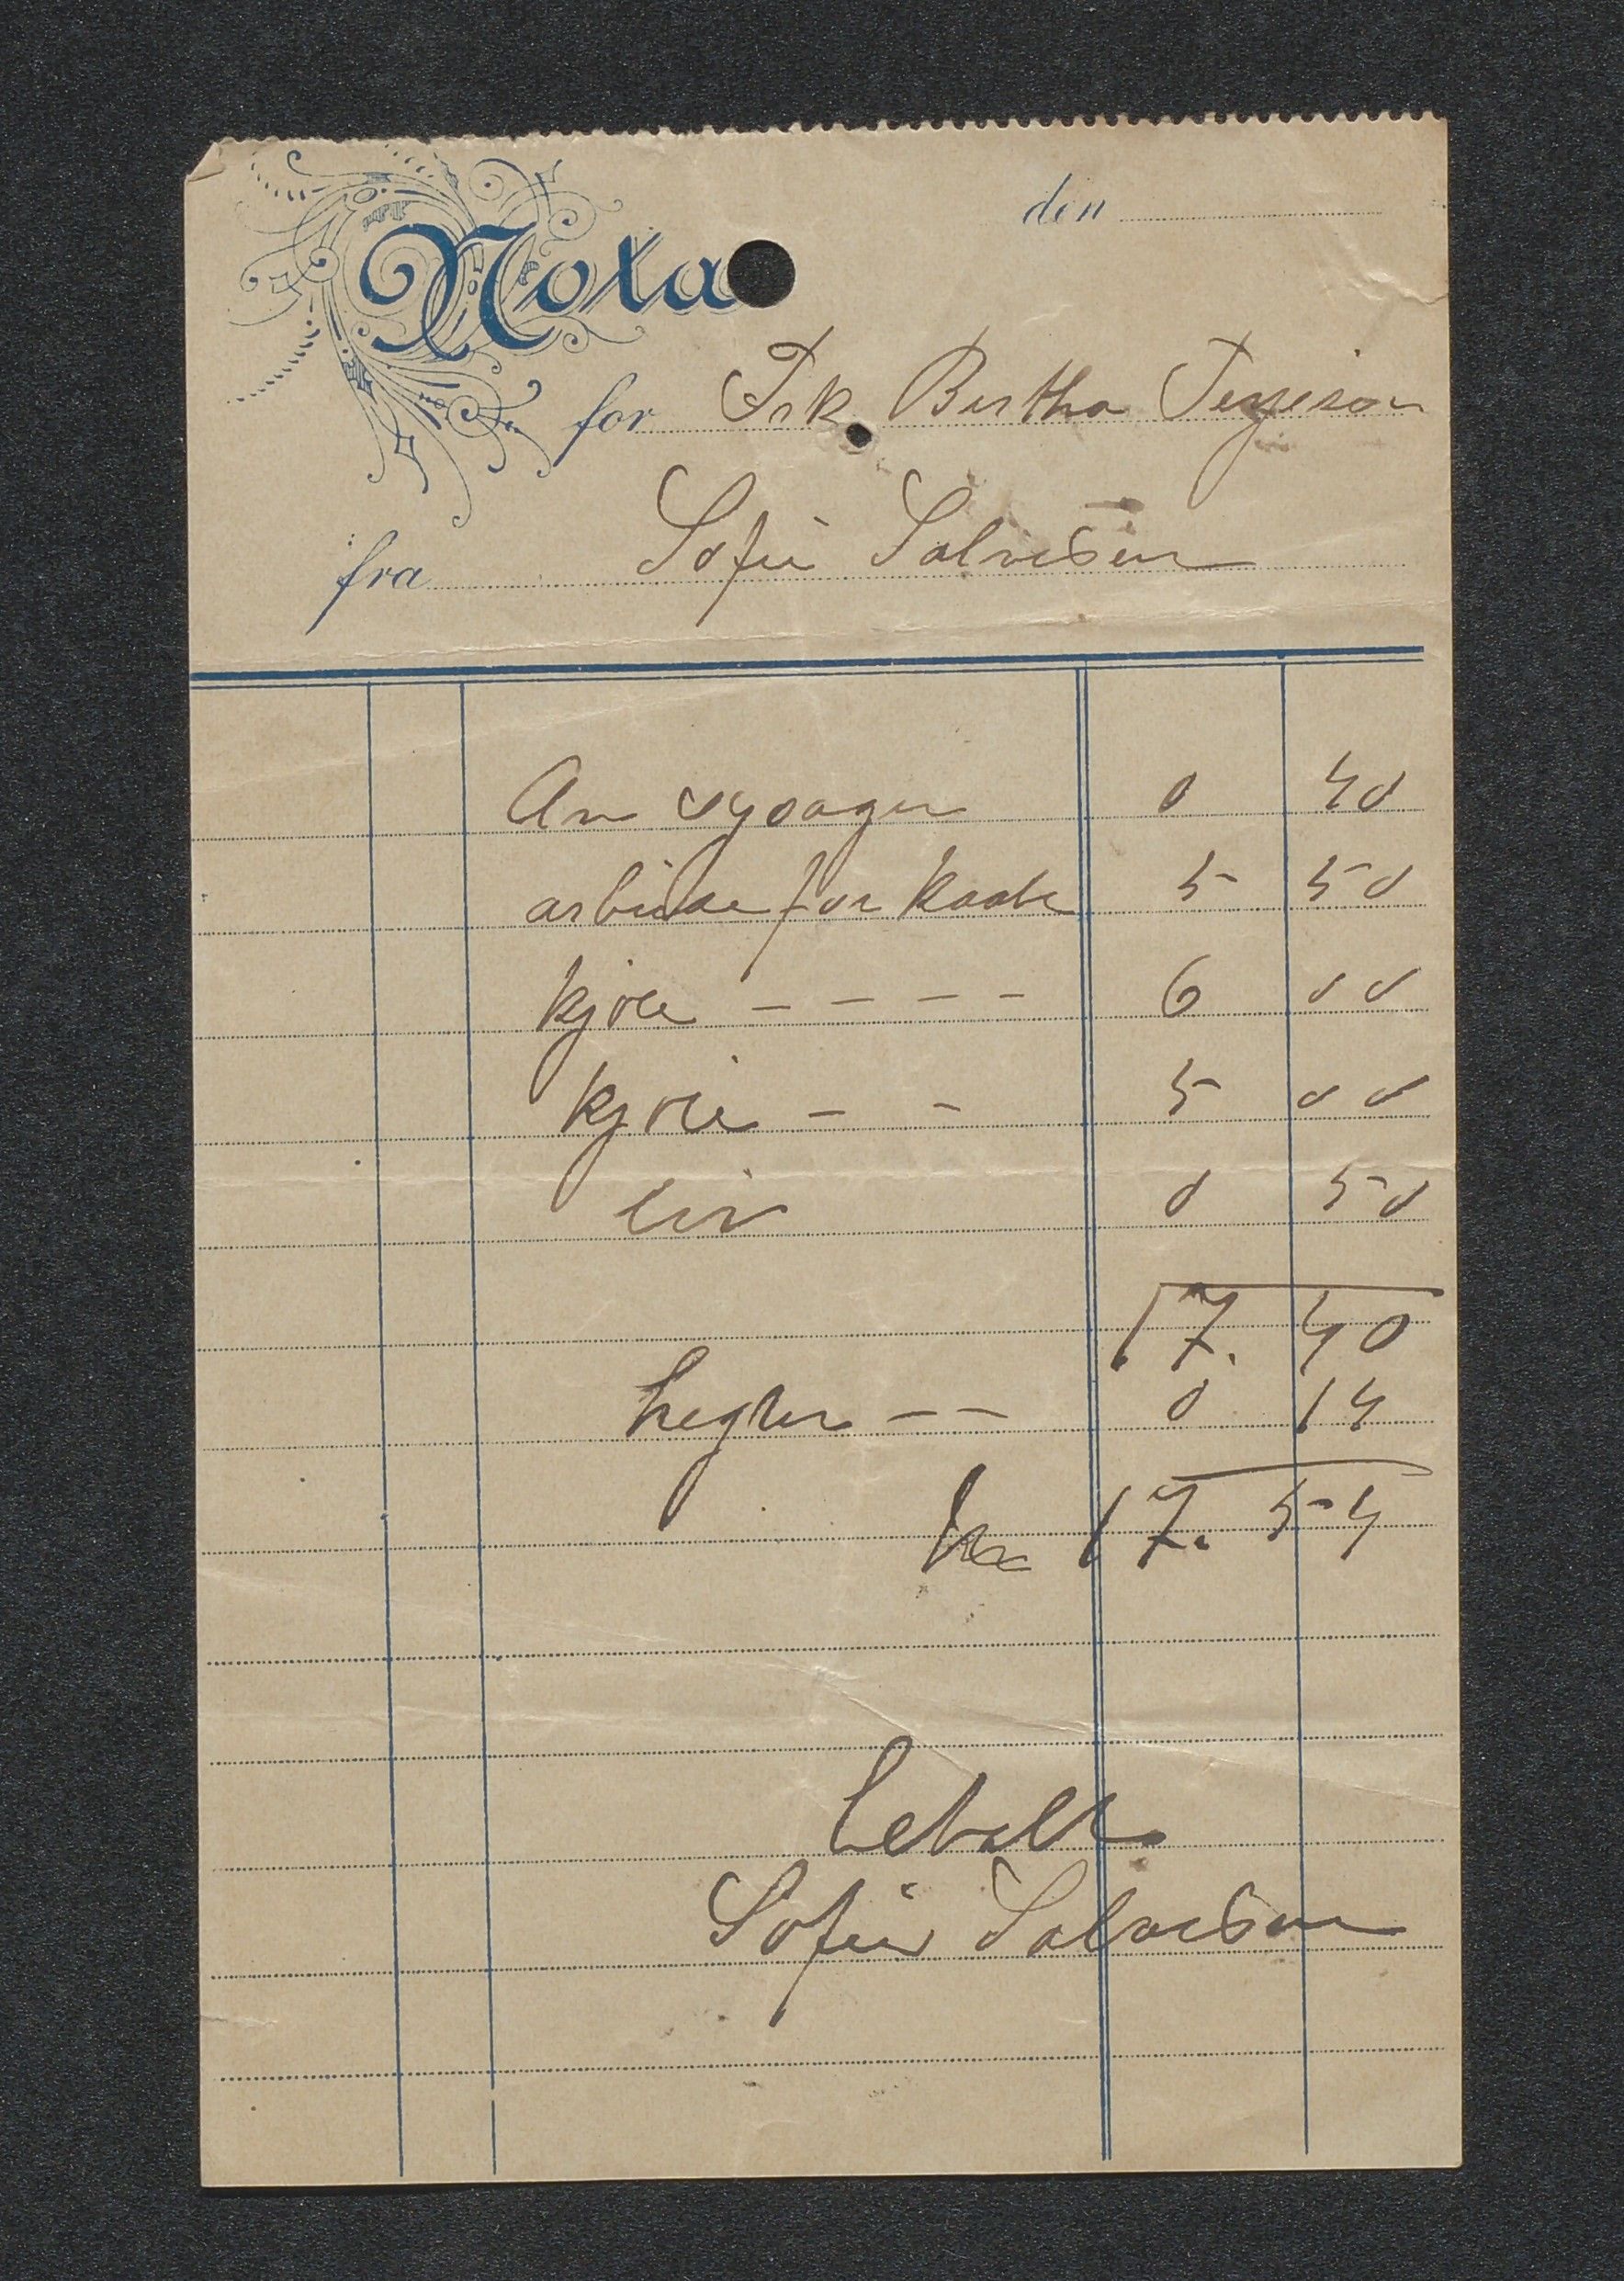 den
Nota
for Frk. Bertha Terjesen
fra Sofie Salvesen
An sysager 0 40
arbeide for kaabe 5 50
kjole - - - - 6 00
kjole - - 5 00
liv 0 50
17. 40
hegter - - 0 14
kr 17. 54
betalt
Sofie Salvesen